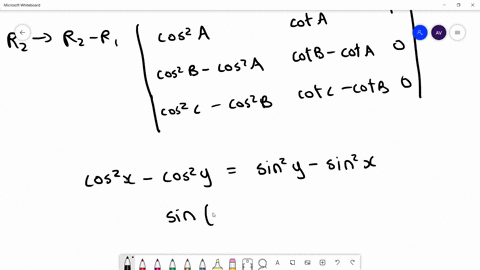 Microsoft Whiteboard
R₂ → R₂ - R₁
cos² A cot A
cos² B - cos² A cot B - cot A 0
cos² C - cos² B cot C - cot B 0
AV
cos² x - cos² y = sin² y - sin² x
sin (